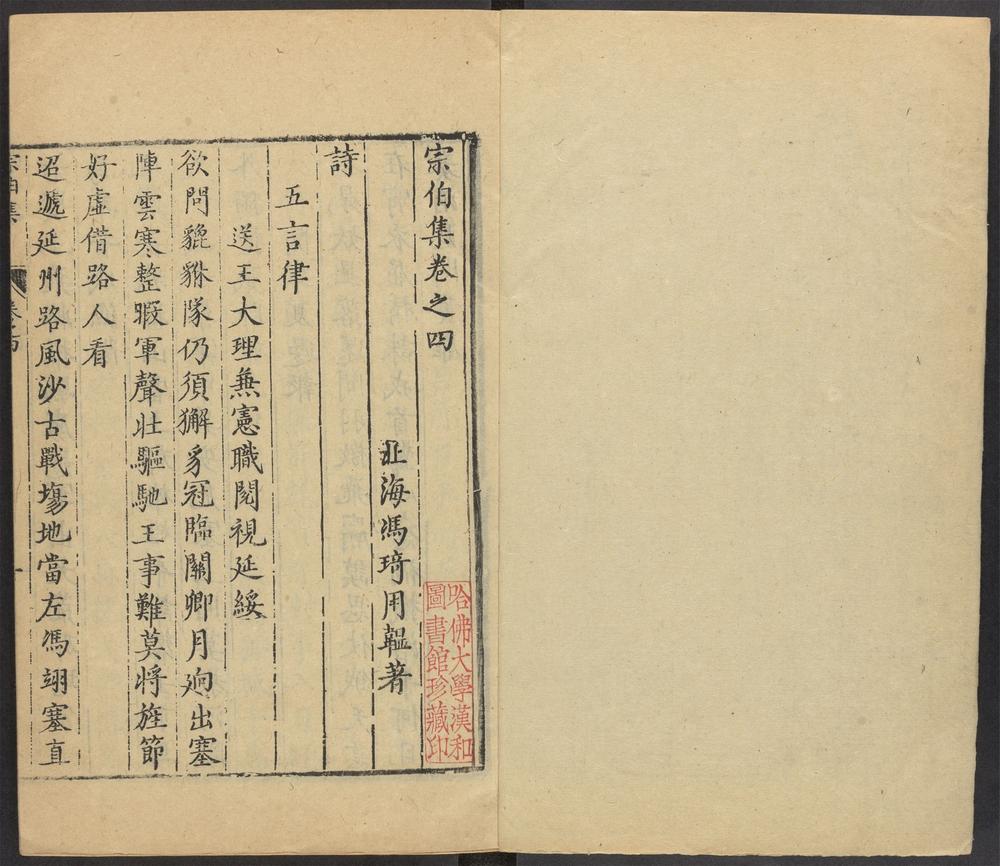 宗伯集卷之四
北海馮琦用韞著
詩
五言律
送王大理兼憲職閱視延綏
欲問貔貅隊仍須獬豸冠臨關卿月逈出塞
陣雲寒整暇軍聲壯驅馳王事難莫將旌節
好虛借路人看
迢遞延州路風沙古戰塲地當左馮翊塞直
宗伯集
卷之四
一
哈佛大學漢和
圖書館珍藏印